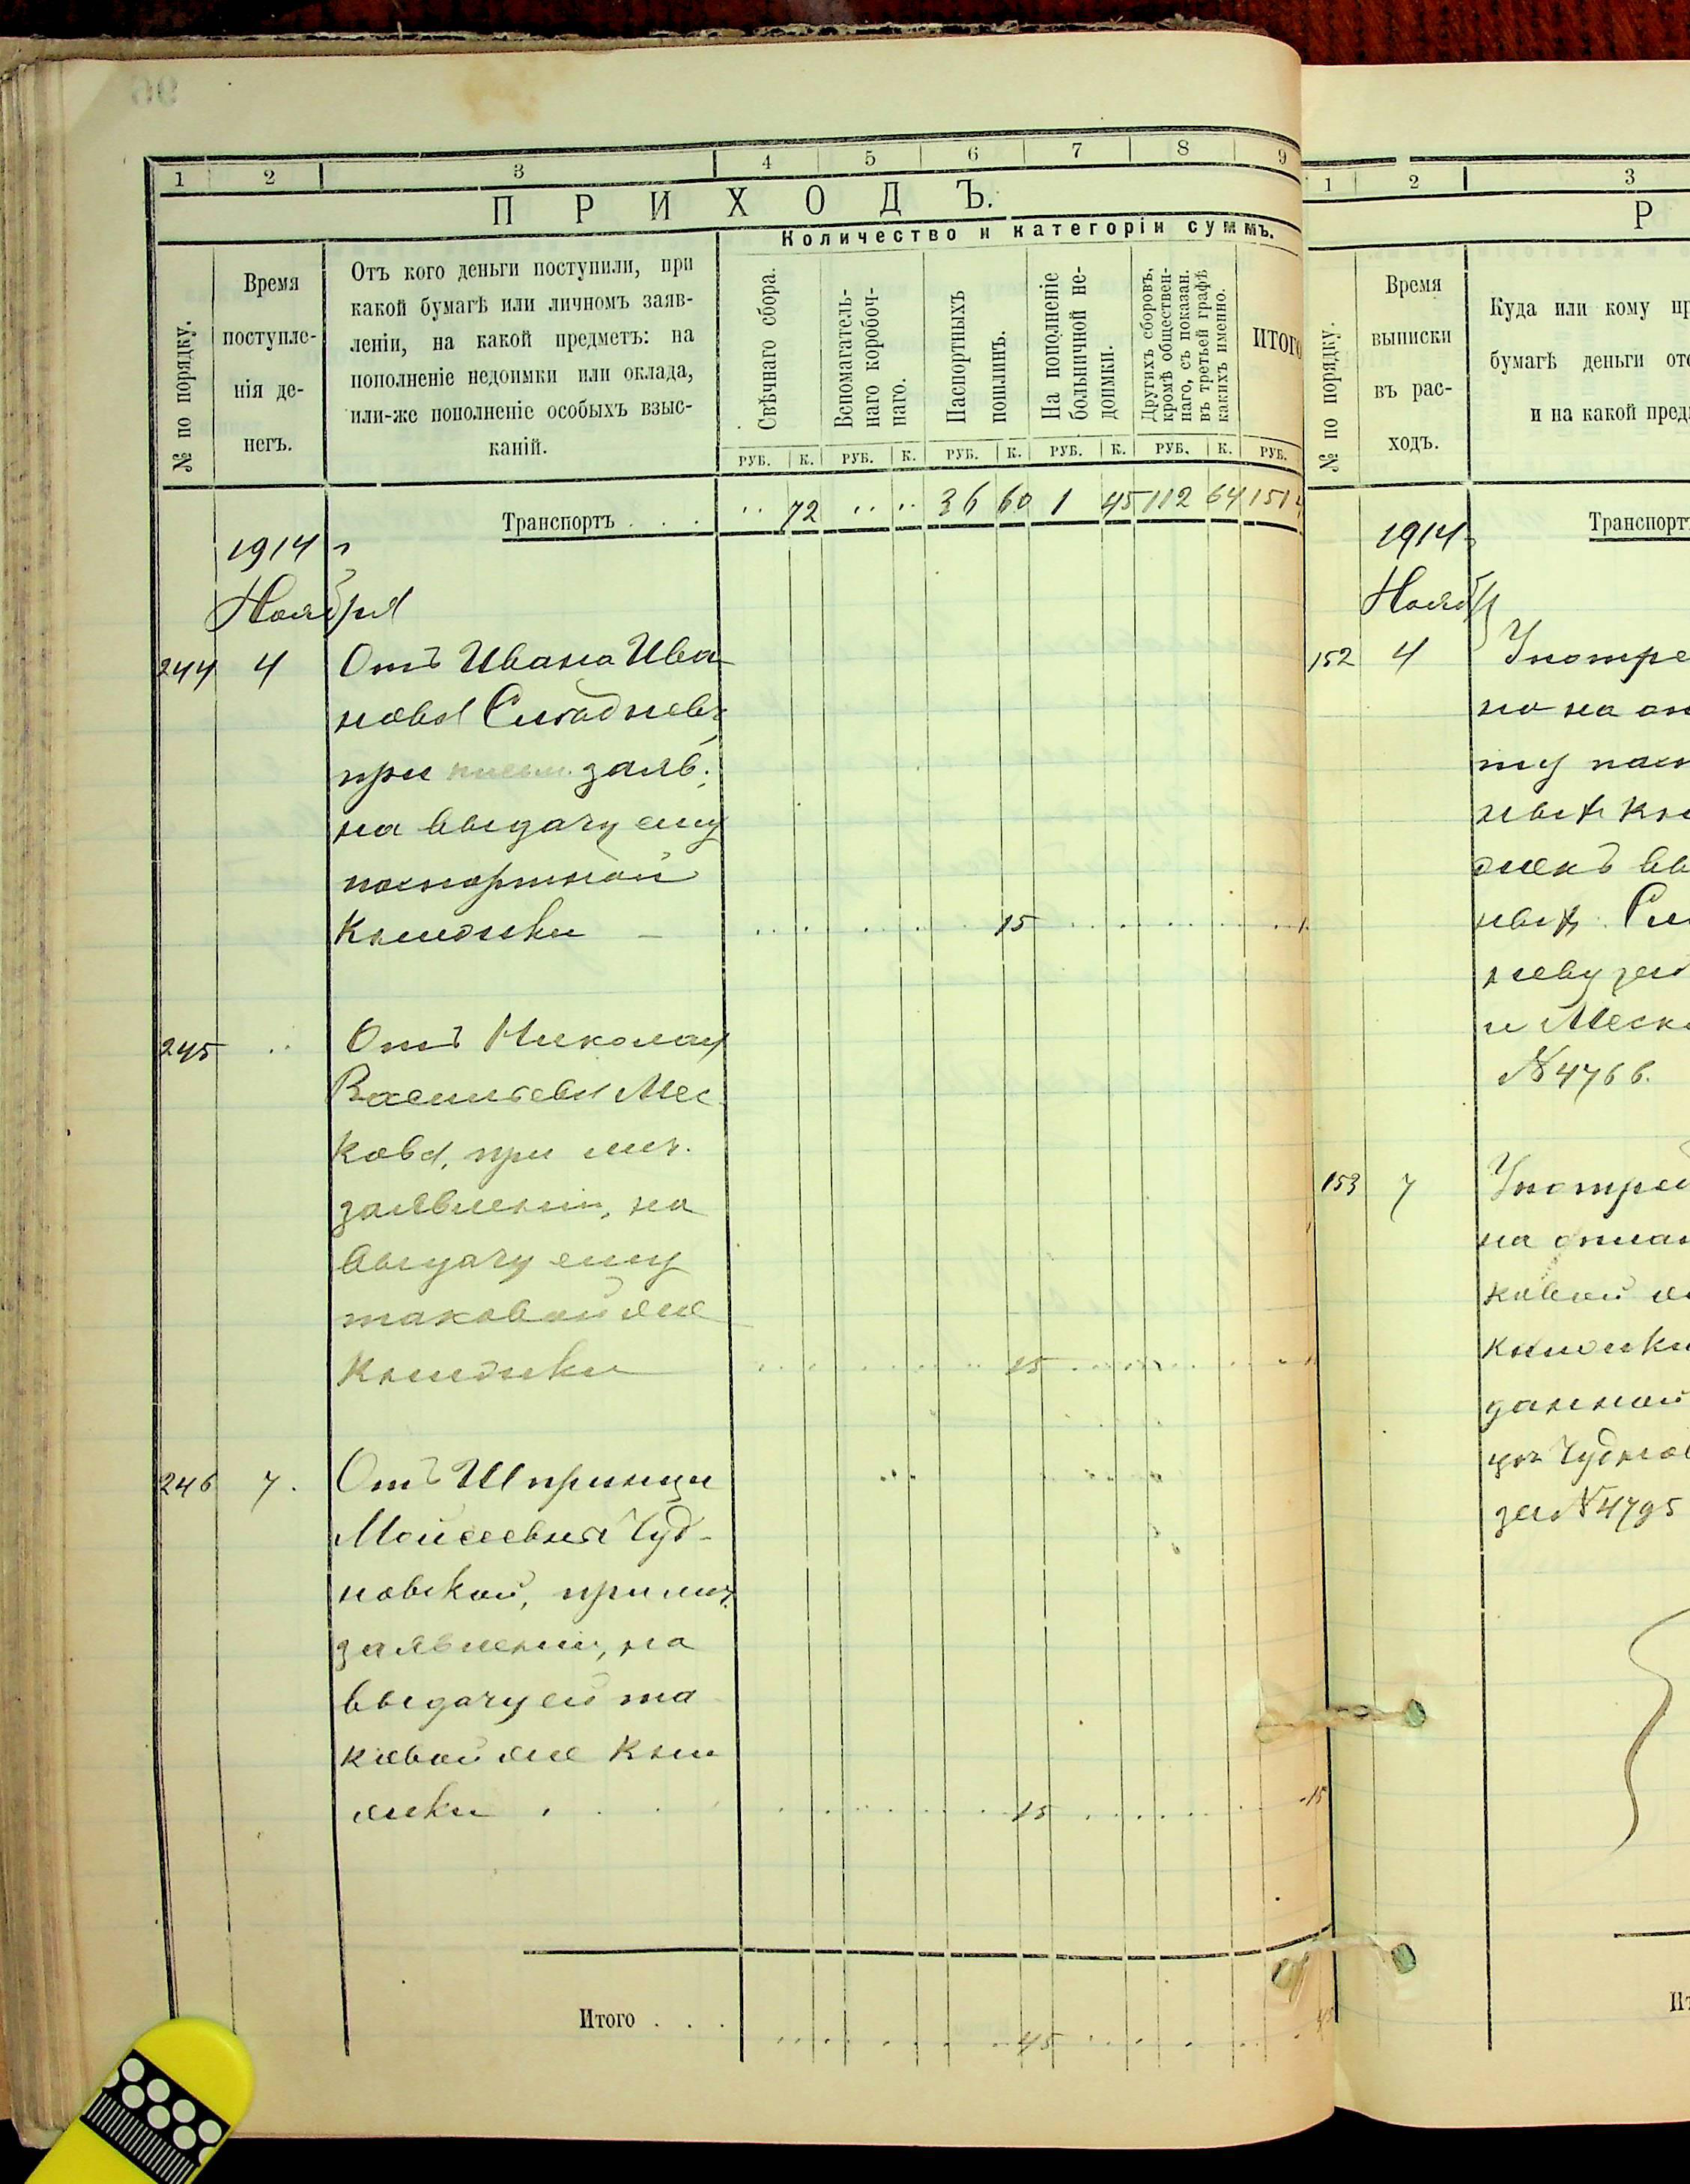 1 2 3 4 5 6 7 8 9
ПРИХОДЪ.
№ по порядку.
Время
поступле-
нія де-
негъ.
Отъ кого деньги поступили, при
какой бумагѣ или личномъ заяв-
леніи, на какой предметъ: на
пополненіе недоимки или оклада,
или-же пополненіе особыхъ взыс-
каній.
Количество и категоріи суммъ.
Свѣчнаго сбора.
Вспомагатель-
наго коробоч-
наго.
Паспортныхъ
пошлинъ.
На пополненіе
больничной не-
доимки.
Другихъ сборовъ,
кромѣ обществен-
наго, съ показан.
въ третьей графѣ
какихъ именно.
ИТОГО
РУБ. К. РУБ. К. РУБ. К. РУБ. К. РУБ. К. РУБ.
Транспортъ . . . 72 36 60 1 45 112 64 151
1914 г
Ноября
244 4 Отъ Ивана Ива
нова
при заяв.
на выдачу ему
паспортной
книжки 15
245 Отъ Николая
Васильева Мес
кова, при лич.
заявленіи, на
выдачу ему
таковой же
книжки 15
246 7. Отъ Шпринци
Мойсеевна Чуд-
новской, при лич.
заявленіи, на
выдачу ей та
ковой же кни
жки 15 15
Итого . . . 45 45
1 2 3
Р
№ по порядку.
Время
выписки
въ рас-
ходъ.
Куда или кому пр
бумагѣ деньги от
и на какой пред
Транспорт
1914
Ноябр
152 4 Употре
но на
ту пасп
ныхъ кни
жекъ вы
ныхъ
неву
и Меск
№ 4766.
153 7 Употреб
на
ковой
книжки
данной
Чуднов
за № 4795
Ит